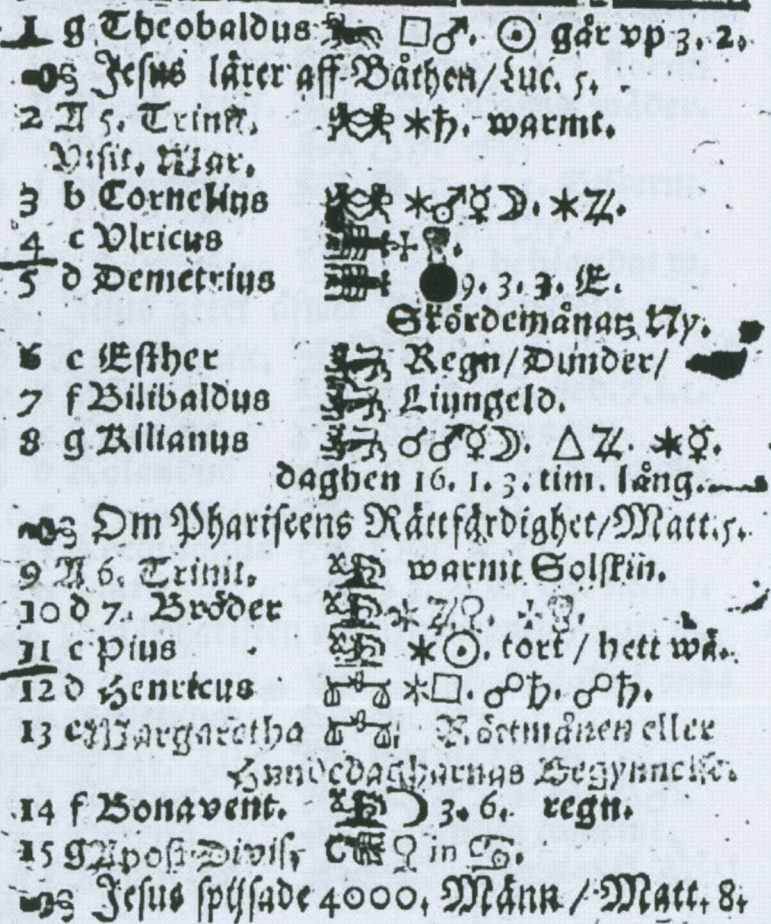 1 g Theobaldus □♂. ☉ går vp 3. 2.
Jesus lärer aff Båthen/Luc. 5.
2 A 5. Trinit. ✶♄. warmt.
Visit. Mar.
3 b Cornelius ✶♂☿☽. ✶♃.
4 c Vlricus
5 d Demetrius ● 9. 3. 3. E.
Skördemånatz Ny.
6 e Esther Regn/Dunder/
7 f Bilibaldus Liungeld.
8 g Kilianus ☌♂☿☽. △♃. ✶☿.
daghen 16. 1. 3. tim. lång.
Om Phariseens Rättfärdighet/Matt. 5.
9 A 6. Trinit. warmt Solskin.
10 b 7. Bröder
11 c Pius ✶☉. tort / hett wä.
12 d Henricus ✶□. ☍♄. ☍♄.
13 e Margaretha Rötmånen eller
Hundedagharnas Begynnelse.
14 f Bonavent. ☽ 3. 6. regn.
15 g Apost. Divis. ♀ in ♋.
Jesus spijsade 4000. Männ / Matt. 8.